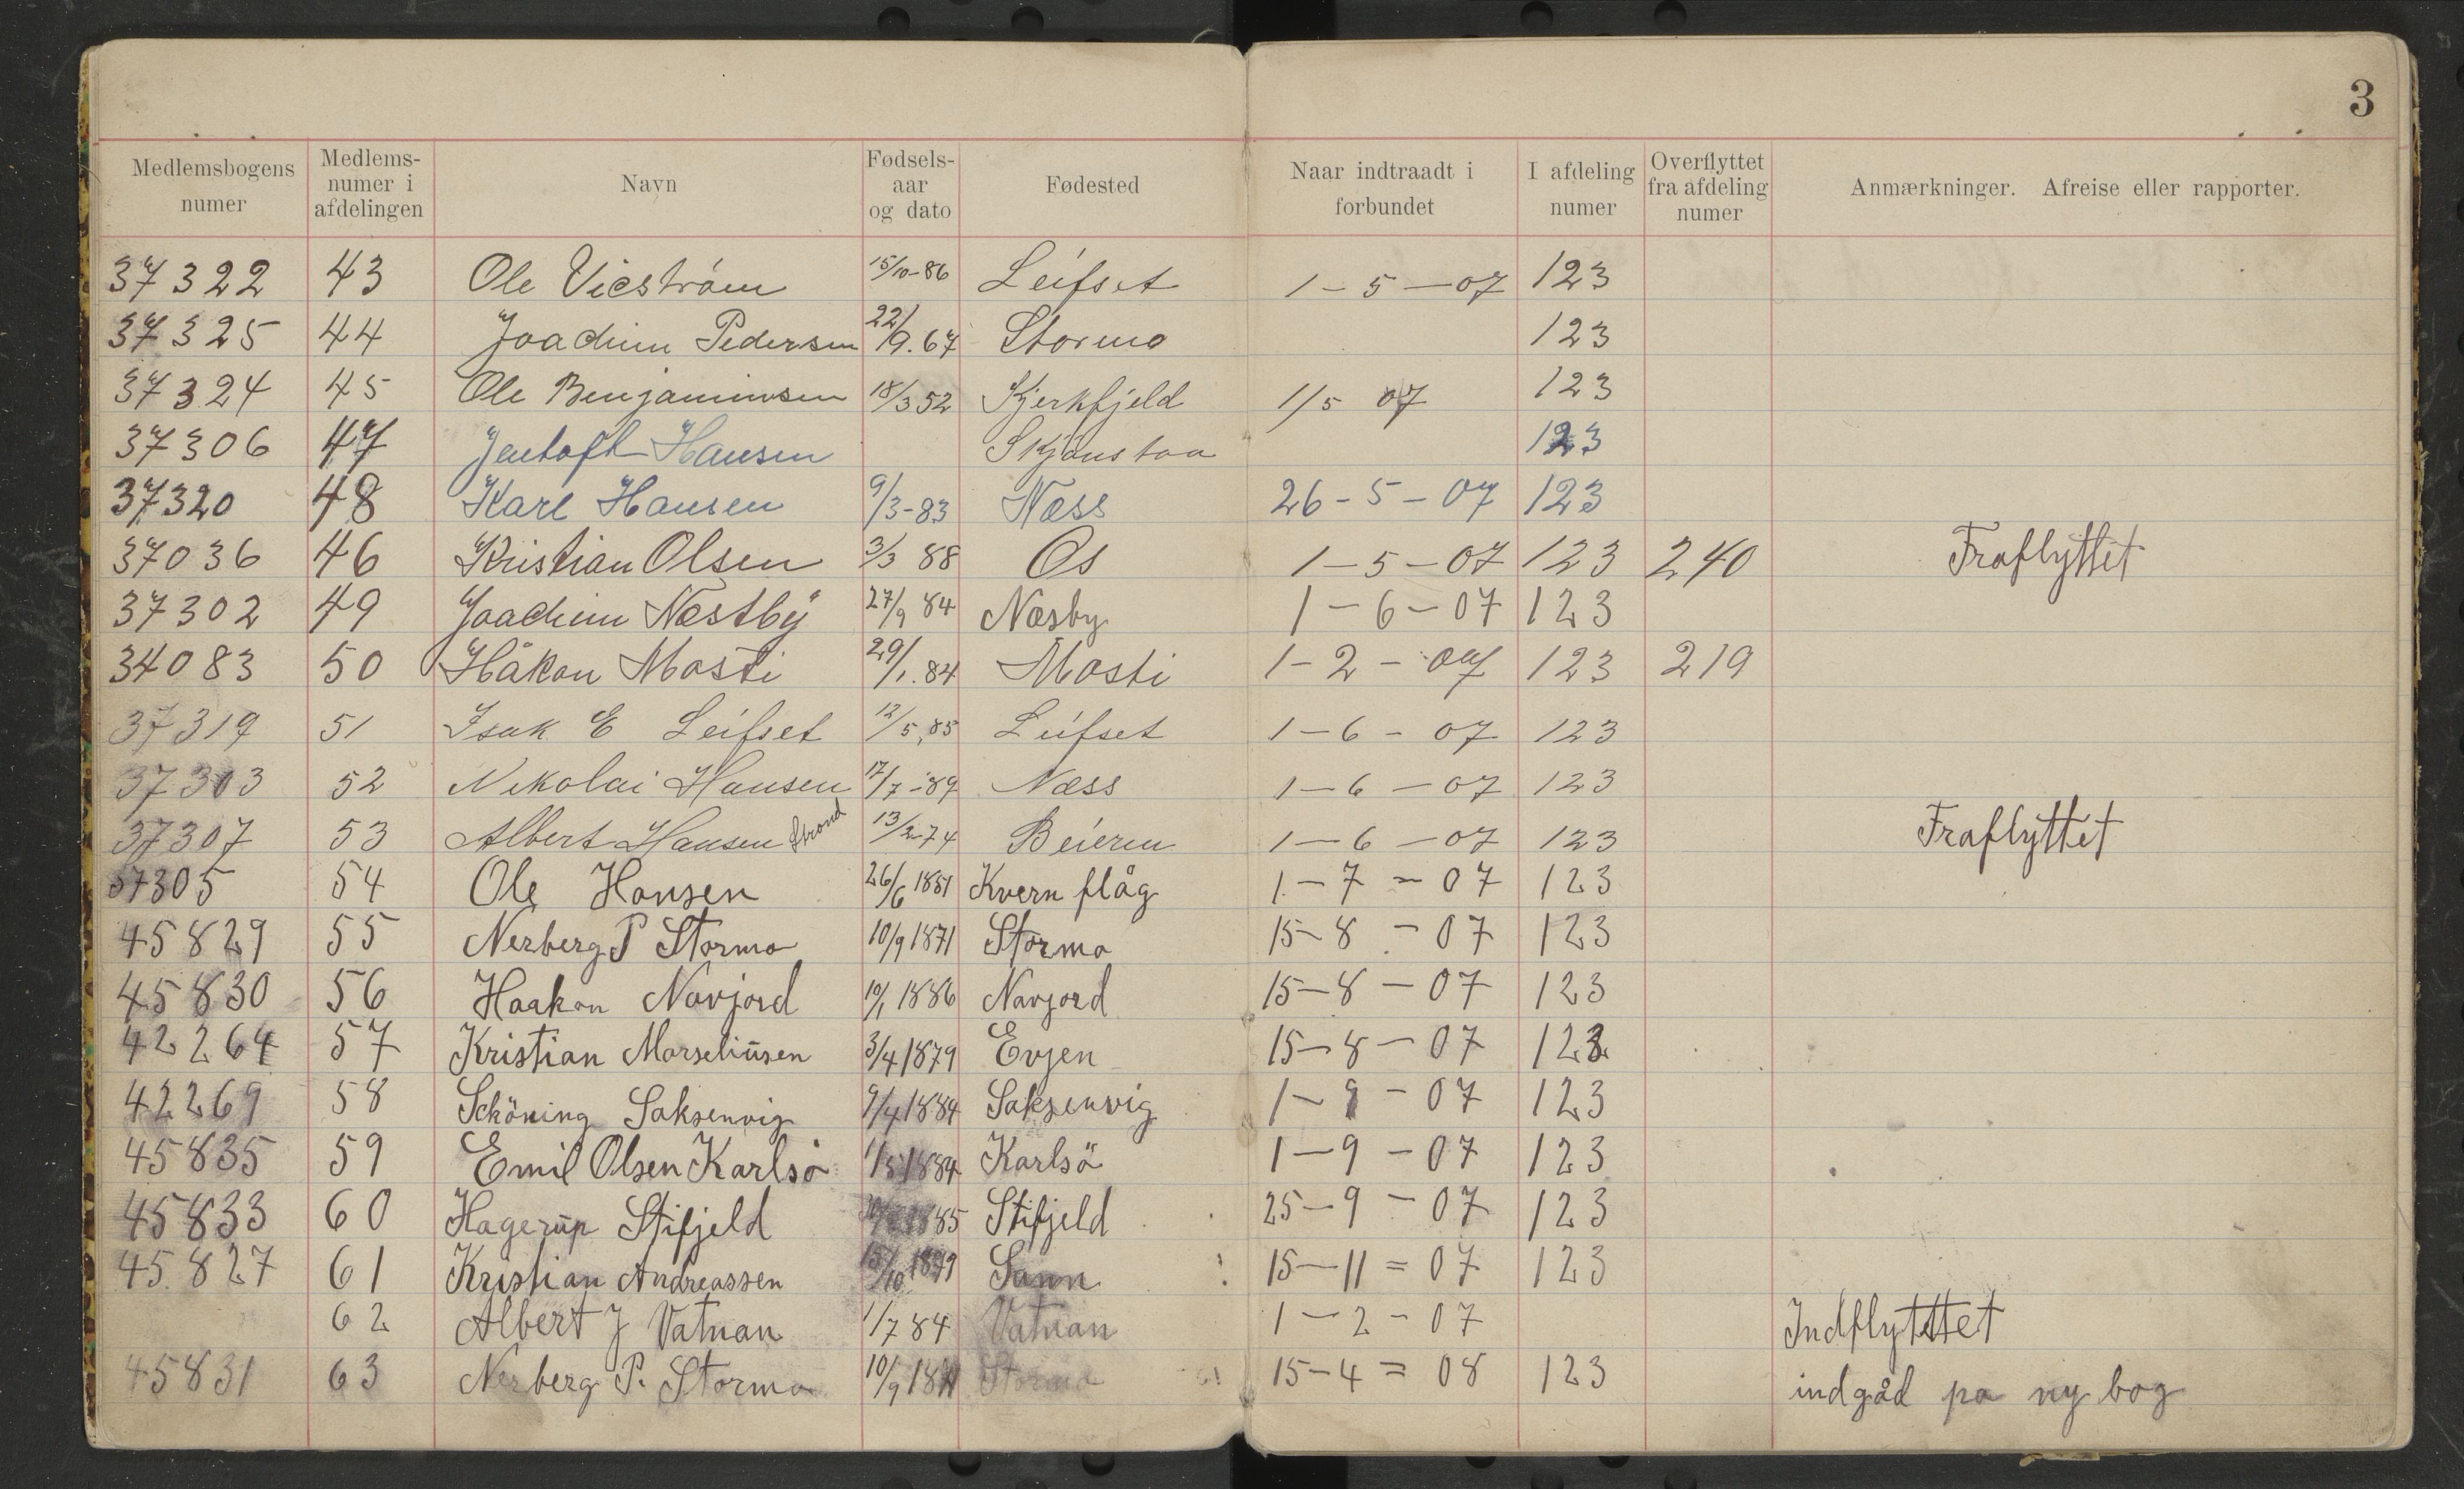 3
Medlemsbogens numer | Medlems-numer i afdelingen | Navn | Fødsels-aar og dato | Fødested | Naar indtraadt i forbundet | I afdeling numer | Overflyttet fra afdeling numer | Anmærkninger. Afreise eller rapporter.
37322 43 Ole Vicström 15/10-86 Leifset 1-5-07 123
37325 44 Joachim Pedersen 22/9.67 Stormo 123
37324 45 Ole Benjaminsen 18/3 52 Kjerkfjeld 1/5 07 123
37306 47 Jentoft Hansen Skjønstaa 123
37320 48 Karl Hansen 9/3-83 Næss 26-5-07 123
37036 46 Kristian Olsen 3/3 88 Os 1-5-07 123 240 Fraflyttet
37302 49 Joachim Næstby 27/9 84 Næsby 1-6-07 123
34083 50 Håkon Mosti 29/1.84 Mosti 1-2-07 123 219
37319 51 Isak E Leifset 12/5,85 Leifset 1-6-07 123
37303 52 Nikolai Hansen 17/7-89 Næss 1-6-07 123
37307 53 Albert Hansen Strand 13/2-74 Beieren 1-6-07 123 Fraflyttet
37305 54 Ole Hansen 26/6 1851 Kvernflåg 1-7-07 123
45829 55 Nerberg P Stormo 10/9 1871 Stormo 15-8-07 123
45830 56 Haakon Navjord 10/1 1886 Navjord 15-8-07 123
42264 57 Kristian Marseliusen 3/4 1879 Evjen 15-8-07 123
42269 58 Schöning Saksenvig 9/4 1884 Saksenvig 1-9-07 123
45835 59 Emil Olsen Karlsö 1/5 1884 Karlsö 1-9-07 123
45833 60 Hagerup Stifjeld 1885 Stifjeld 25-9-07 123
45827 61 Kristian Andreassen 15/10 1879 Sann 15-11=07 123
62 Albert J Vatnan 1/7 84 Vatnan 1-2-07 Indflyttet
45831 63 Nerberg P. Stormo 10/9 1871 Stormo 15-4=08 123 indgåd pa ny bog